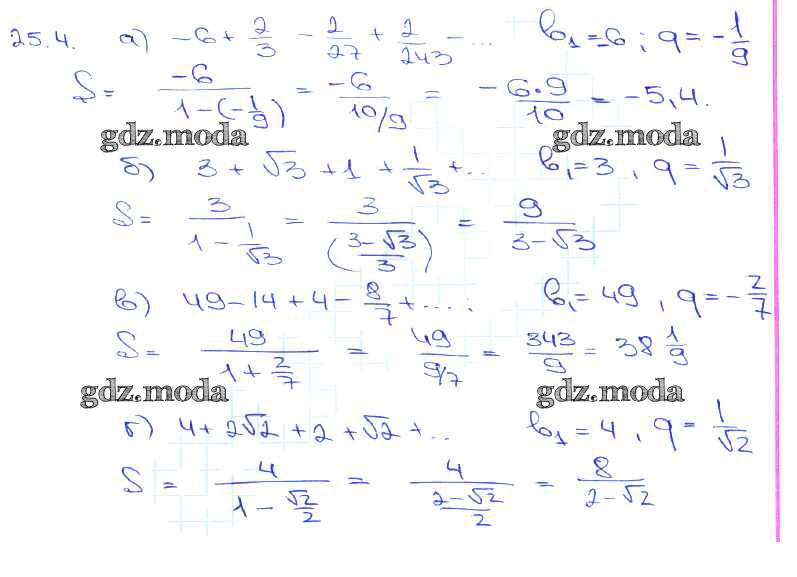 25.4. а) -6 + 2/3 - 2/27 + 2/243 - ... b₁ = -6 ; q = -1/9
S = -6/(1-(-1/9)) = -6/(10/9) = -6·9/10 = -5,4.
gdz.moda gdz.moda
б) 3 + √3 + 1 + 1/√3 + ... b₁ = 3 , q = 1/√3
S = 3/(1 - 1/√3) = 3/((3-√3)/3) = 9/(3-√3)
в) 49 - 14 + 4 - 8/7 + .... ; b₁ = 49 , q = -2/7
S = 49/(1 + 2/7) = 49/(9/7) = 343/9 = 38 1/9
gdz.moda gdz.moda
г) 4 + 2√2 + 2 + √2 + ... b₁ = 4 , q = 1/√2
S = 4/(1 - √2/2) = 4/((2-√2)/2) = 8/(2-√2)